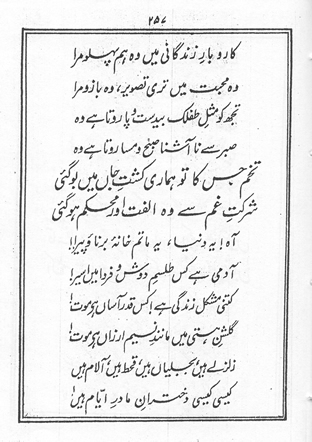 ۲۵۷
کاروبارِ زندگانی میں وہ ہم پہلو مرا
وہ محبت میں تری تصویر، وہ بازو مرا
تجھ کو مثلِ طفلک بیدست و پا روتا ہے وہ
صبر سے نا آشنا صبح و مسا روتا ہے وہ
تخم جس کا تو ہماری کشتِ جاں میں بو گئی
شرکتِ غم سے وہ الفت اور محکم ہو گئی
آہ! یہ دنیا، یہ ماتم خانۂ برنا و پیر!
آدمی ہے کس طلسمِ دوش و فردا میں اسیر!
کتنی مشکل زندگی ہے! کس قدر آساں ہے موت!
گلشنِ ہستی میں مانندِ نسیم ارزاں ہے موت!
زلزلے ہیں، بجلیاں ہیں، قحط ہیں، آلام ہیں
کیسی کیسی دخترانِ مادرِ ایام ہیں!